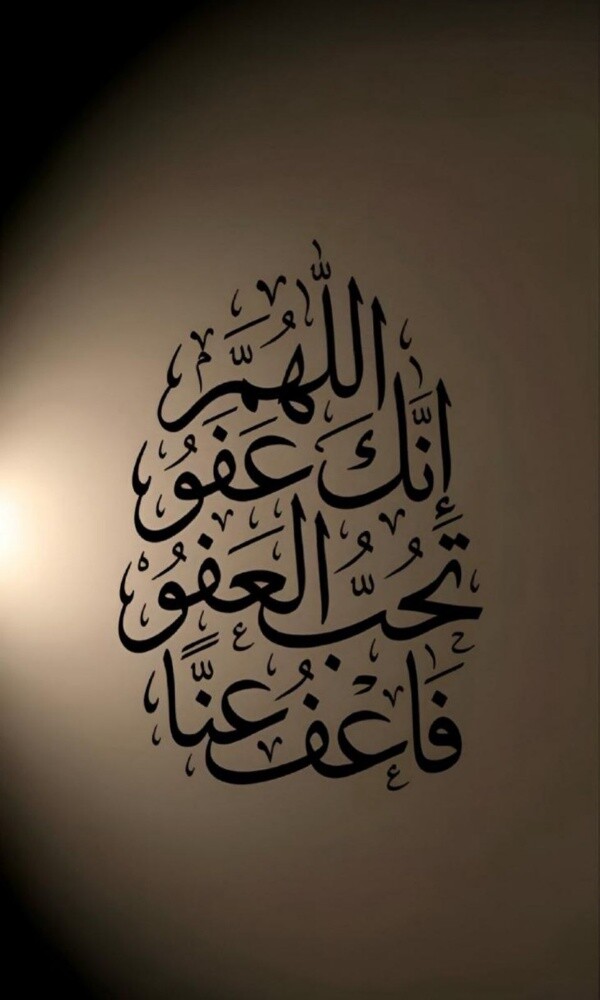 اللَّهُمَّ
إِنَّكَ عَفُوٌ
تُحُبُّ العَفُوَ
فَاعْفُ عَنَّا